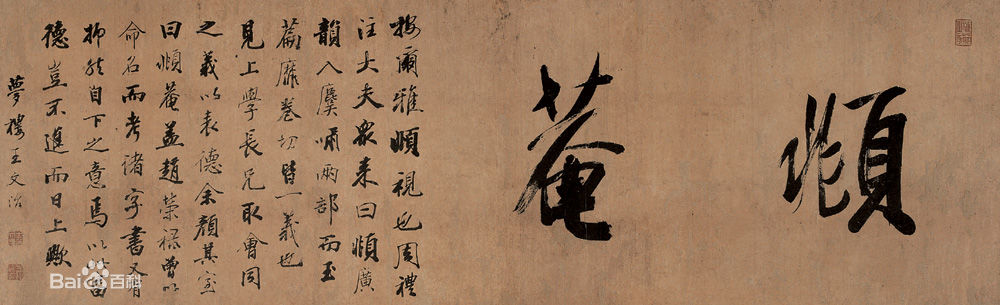 頫菴
按爾雅頫視也周禮
注大夫衆来曰頫廣
韻入麌嘯兩部而玉
篇靡卷切皆一義也
見上學長兄取會同
之義以表德余顏其室
曰頫菴蓋趙榮祿曽以
命名而考諸字書又有
抑然自下之意焉以畜
德豈不進而日上歟
夢樓王文治
Bai百科